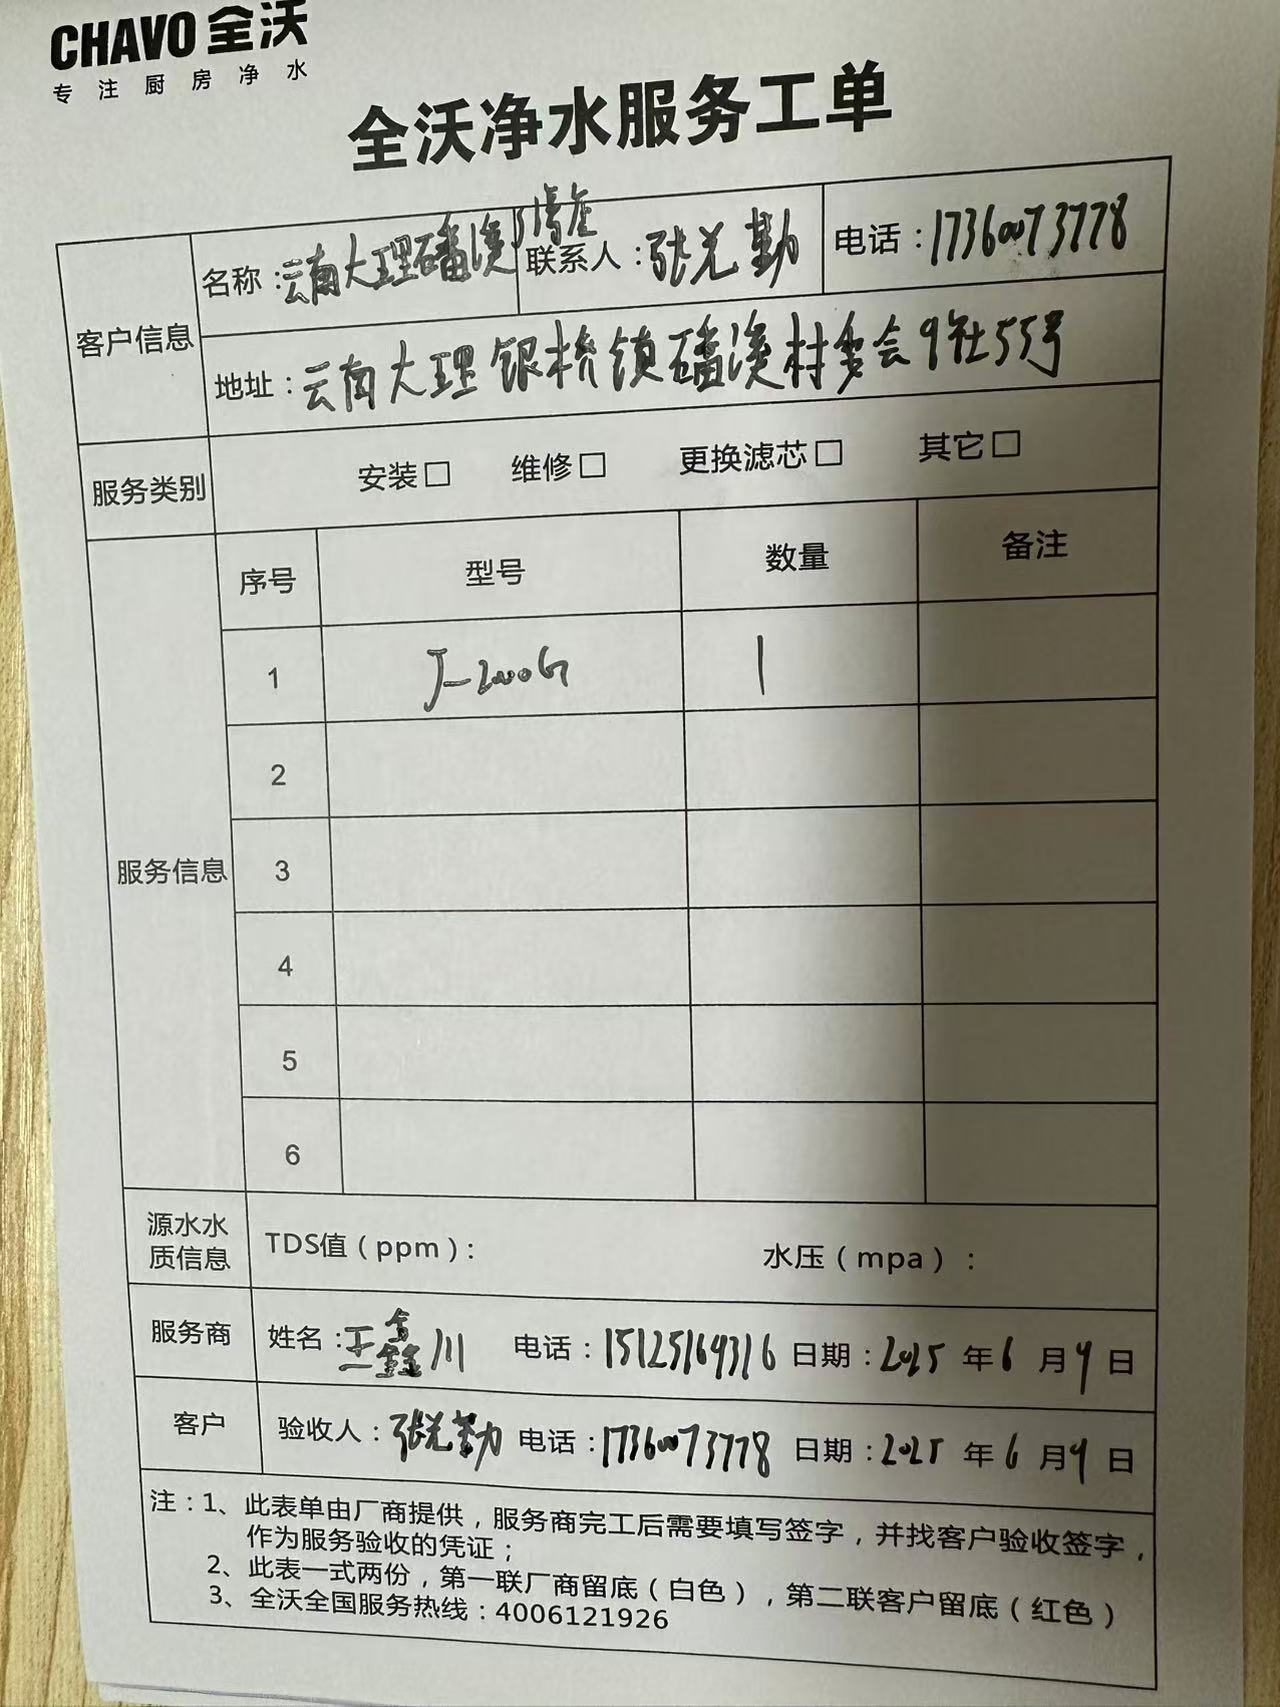 CHAVO 全沃
专注厨房净水
全沃净水服务工单
客户信息
名称：云南大理磻溪
联系人：张光勤
电话：17360073778
地址：云南大理银桥镇磻溪村委会9社55号
服务类别
安装□ 维修□ 更换滤芯□ 其它□
服务信息
序号 型号 数量 备注
1 J-2000G 1
2
3
4
5
6
源水水质信息
TDS值（ppm）： 水压（mpa）：
服务商 姓名：王鑫川 电话：15125164316 日期：2025年6月9日
客户 验收人：张光勤 电话：17360073778 日期：2025年6月9日
注：1、此表单由厂商提供，服务商完工后需要填写签字，并找客户验收签字，
作为服务验收的凭证；
2、此表一式两份，第一联厂商留底（白色），第二联客户留底（红色）
3、全沃全国服务热线：4006121926